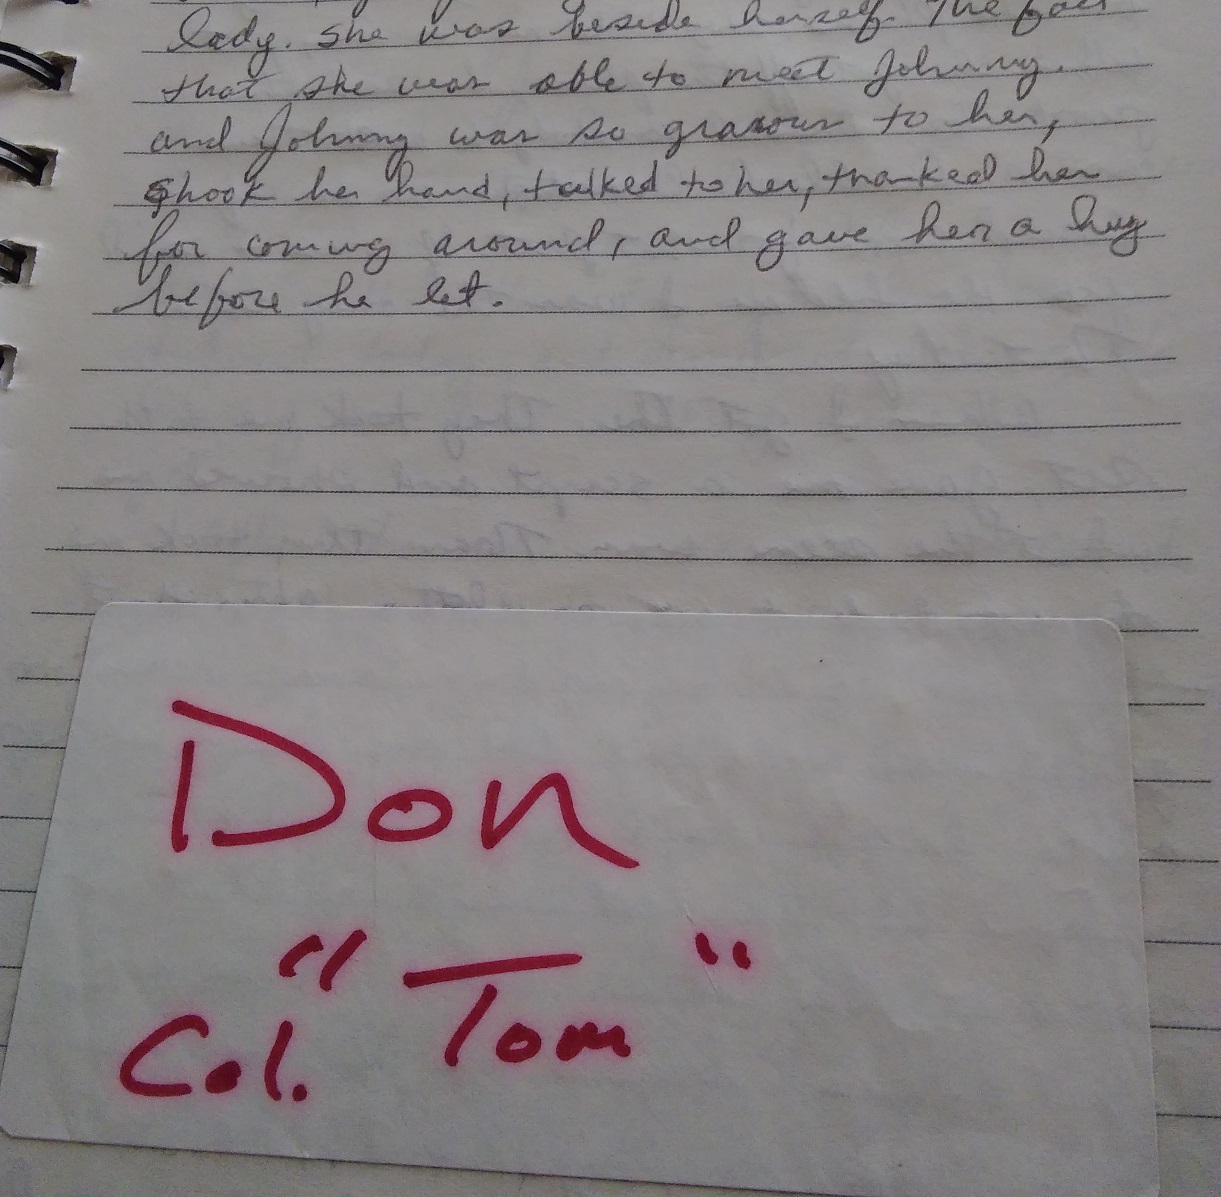 lady. She was beside herself. The fact
that she was able to meet Johnny.
and Johnny was so graxous to her,
shook her hand, talked to her, thanked her
for coming around, and gave her a hug
before he let.
Don
" "
Col. Tom